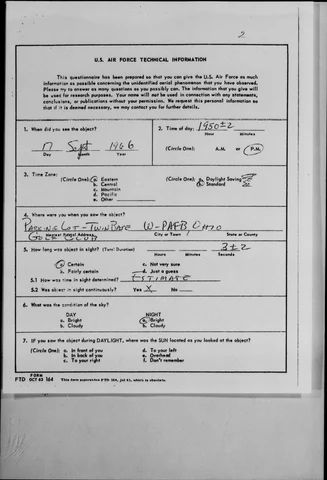 2
U.S. AIR FORCE TECHNICAL INFORMATION
This questionnaire has been prepared so that you can give the U.S. Air Force as much
information as possible concerning the unidentified aerial phenomenon that you have observed.
Please try to answer as many questions as you possibly can. The information that you give will
be used for research purposes. Your name will not be used in connection with any statements,
conclusions, or publications without your permission. We request this personal information so
that if it is deemed necessary, we may contact you for further details.
1. When did you see the object?
17 Sept 1966
Day Month Year
2. Time of day: 1950±2
Hour Minutes
(Circle One): A.M. or P.M.
3. Time Zone:
(Circle One): a. Eastern
b. Central
c. Mountain
d. Pacific
e. Other
(Circle One): a. Daylight Saving
b. Standard
4. Where were you when you saw the object?
PARKING LOT - TWIN BASE W-PAFB OHIO
Nearest Postal Address City or Town State or County
GOLF CLUB
5. How long was object in sight? (Total Duration) 3±2
Hours Minutes Seconds
a. Certain c. Not very sure
b. Fairly certain d. Just a guess
5.1 How was time in sight determined? ESTIMATE
5.2 Was object in sight continuously? Yes X No
6. What was the condition of the sky?
DAY NIGHT
a. Bright a. Bright
b. Cloudy b. Cloudy
7. IF you saw the object during DAYLIGHT, where was the SUN located as you looked at the object?
(Circle One): a. In front of you d. To your left
b. In back of you e. Overhead
c. To your right f. Don't remember
FORM
FTD OCT 62 164 This form supersedes FTD 164, Jul 61, which is obsolete.